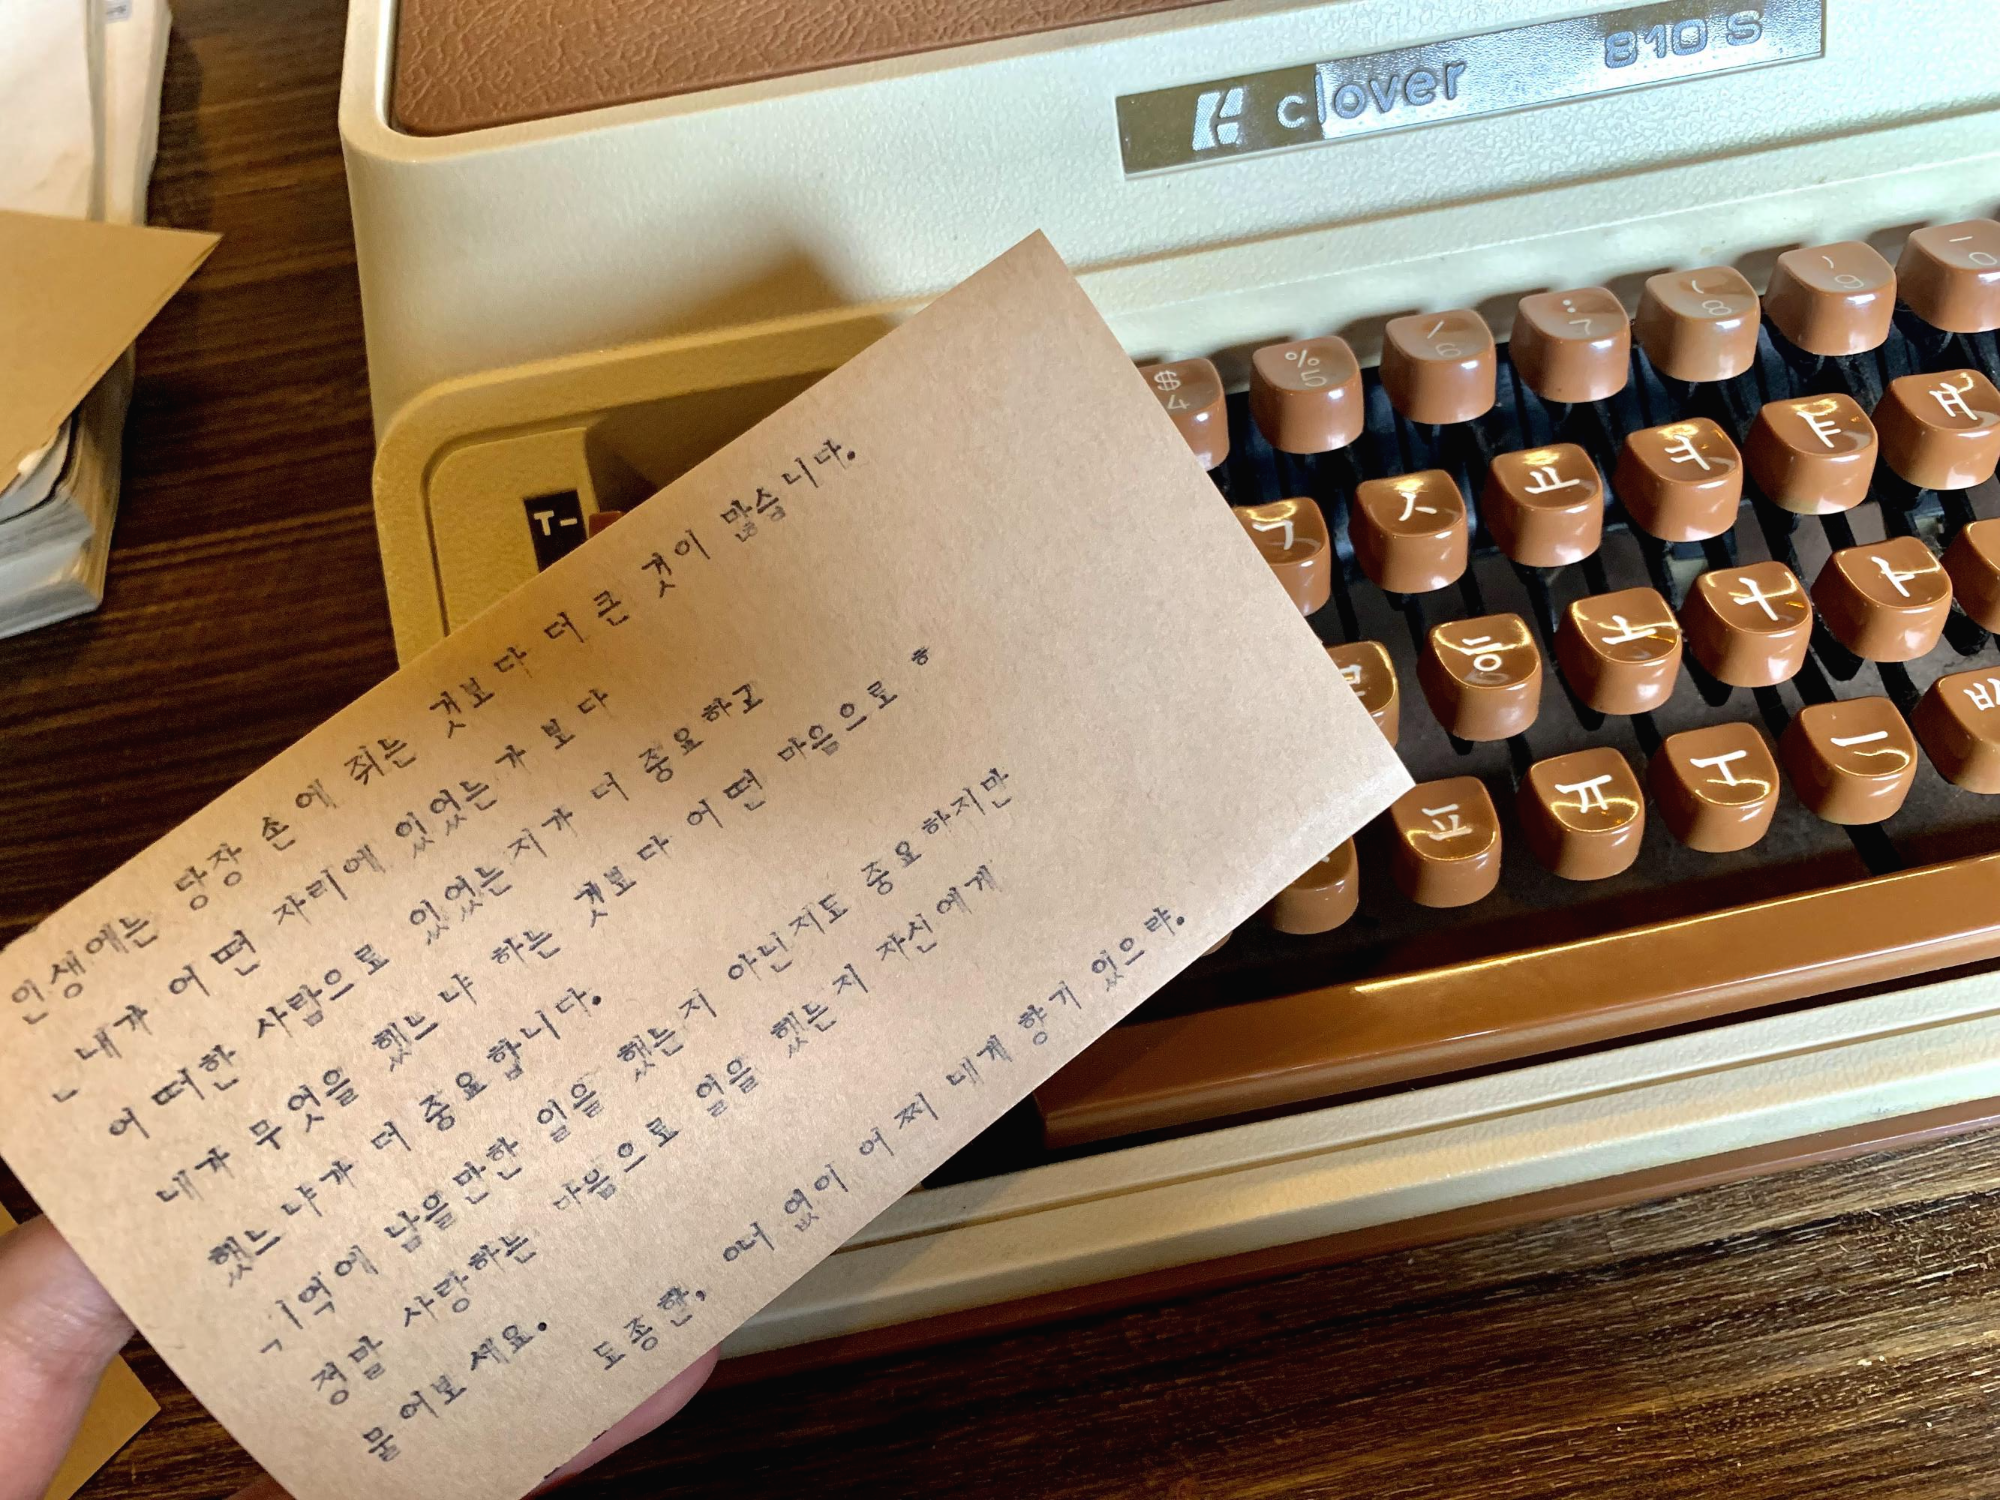 clover 810 S
T-
$ 4
% 5
/ 6
: 7
( 8
) 9
0
ㄱ ㅅ ㅛ ㅕ ㅑ ㅐ
ㅎ ㅗ ㅓ ㅏ
ㅍ ㅠ ㅜ ㅡ ㅂㅅ
인생에는 당장 손에 쥐는 것보다 더 큰 것이 많습니다.
ㄴ내가 어떤 자리에 있었는가보다
어떠한 사람으로 있었는지가 더 중요하고
내가 무엇을 했느냐 하는 것보다 어떤 마음으로 ㅎ
했느냐가 더 중요합니다.
ㄱㅣ억에 남을만한 일을 했는지 아닌지도 중요하지만
정말 사랑하는 마음으로 일을 했는지 자신에게
물어보세요.
도종환, 너 없이 어찌 내게 향기 있으랴.